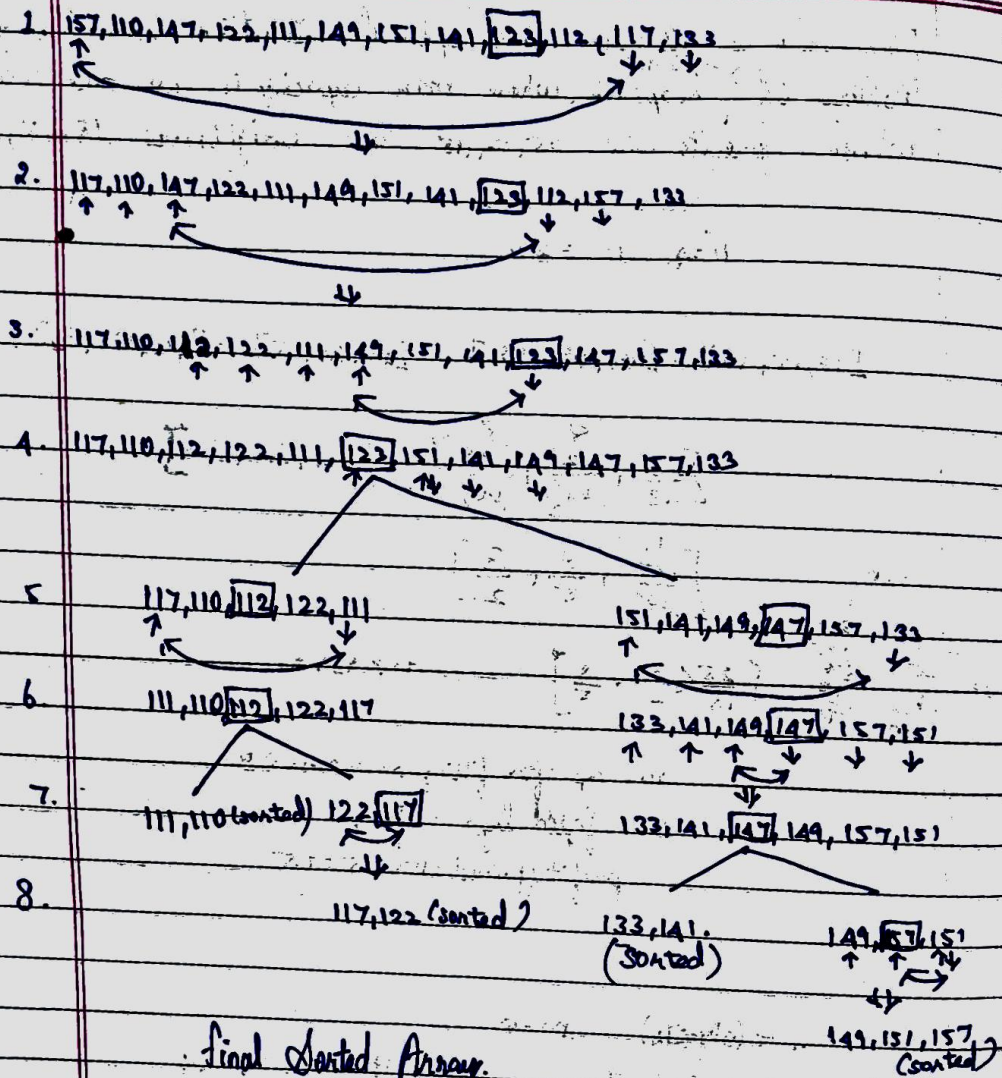 1. 157, 110, 147, 122, 111, 149, 151, 141, 123, 112, 117, 133
2. 117, 110, 147, 122, 111, 149, 151, 141, 123, 112, 157, 133
3. 117, 110, 112, 122, 111, 149, 151, 141, 123, 147, 157, 133
4. 117, 110, 112, 122, 111, 122, 151, 141, 149, 147, 157, 133
5 117, 110, 112, 122, 111 151, 141, 149, 147, 157, 133
6. 111, 110, 112, 122, 117 133, 141, 149, 147, 157, 151
7. 111, 110 (sorted) 122, 117 133, 141, 147, 149, 157, 151
8. 117, 122 (sorted) 133, 141. 149, 157, 151
(sorted)
149, 151, 157,
(sorted)
final Sorted Array.